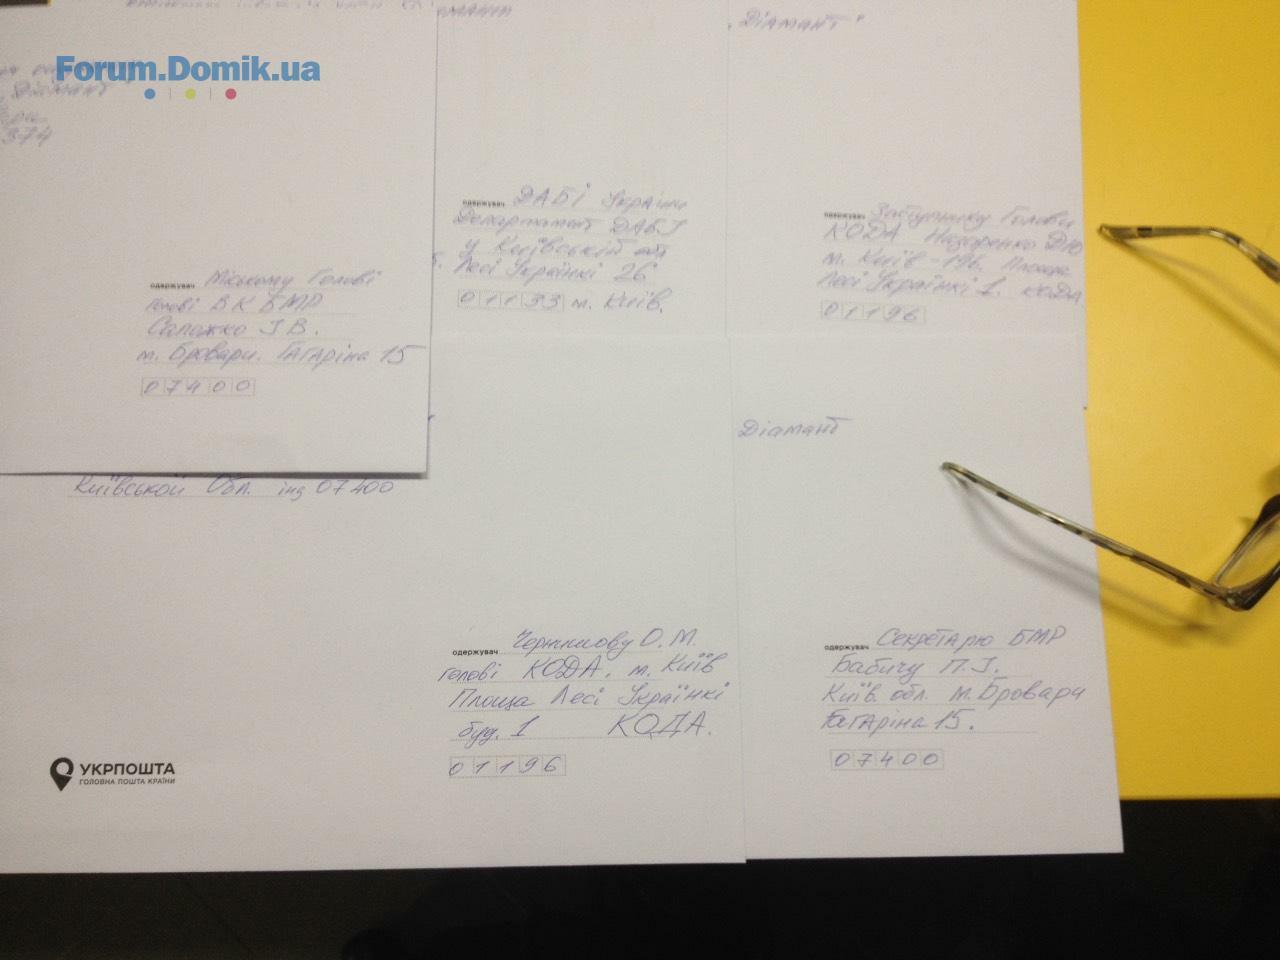 Forum.Domik.ua
Діамант
374
Діамант
одержувач Міському Голові
голові ВК БМР
Сапожко І В.
м. Бровари. Гагаріна 15
07400
одержувач ДАБІ України
Департамент ДАБІ
у Київській обл
Лесі Українкі 26
01133 м. Київ.
одержувач Заступнику Голови
КОДА Назаренко ДЮ
м. Київ-196. Площа
Лесі Українкі 1. КОДА
01196
Київськой Обл. інд 07400
УКРПОШТА
ГОЛОВНА ПОШТА КРАЇНИ
одержувач О.М.
голові КОДА. м. Київ
Площа Лесі Українкі
буд. 1 КОДА.
01196
Діамант
одержувач Секретарю БМР
Бабичу П.І.
Київ. обл. м. Бровари
Гагаріна 15.
07400